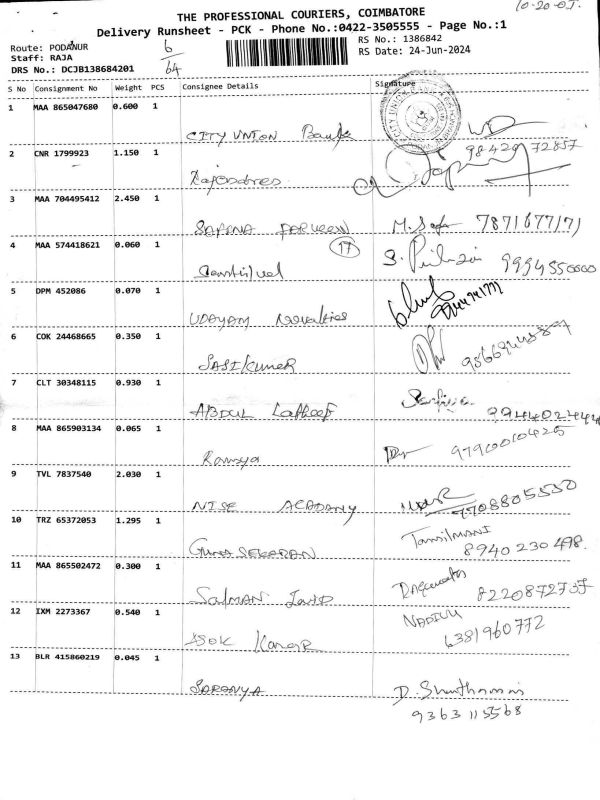 10-20-
THE PROFESSIONAL COURIERS, COIMBATORE
Delivery Runsheet - PCK - Phone No.:0422-3505555 - Page No.:1
Route: PODANUR
Staff: RAJA
DRS No.: DCJB138684201
6
64
RS No.: 1386842
RS Date: 24-Jun-2024
S No Consignment No Weight PCS Consignee Details Signature
1 MAA 865047680 0.600 1
CITY UNION Bank
2 CNR 1799923 1.150 1 98420 72857
3 MAA 704495412 2.450 1
SAFANA PARVEEN M. Safa 7871677171
4 MAA 574418621 0.060 1 17
S. 9994550000
5 DPM 452086 0.070 1
UDAYAM Novelties
6 COK 24468665 0.350 1
SASIKUMER
7 CLT 30348115 0.930 1
ABDUL Latheef
8 MAA 865903134 0.065 1
Ramya
9 TVL 7837540 2.030 1
NISE ACADAMY 7708805550
10 TRZ 65372053 1.295 1 Tamilmani
Guna SEKARAN 8940 230 498.
11 MAA 865502472 0.300 1
Salman Javid
12 IXM 2273367 0.540 1 6381960772
13 BLR 415860219 0.045 1
SARANYA D.
9363 115568